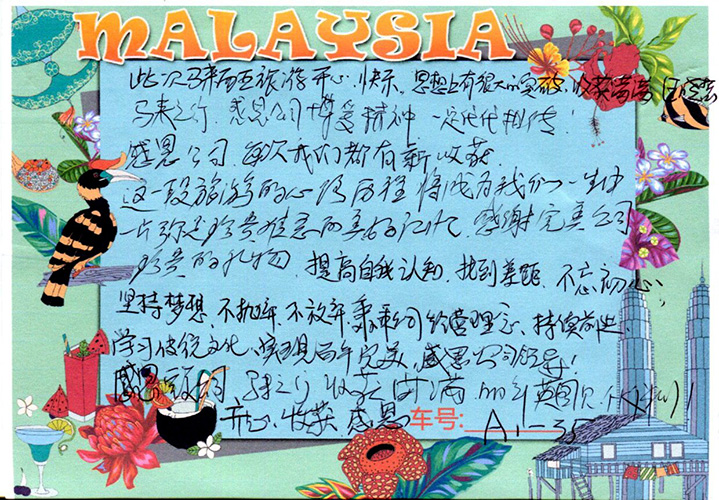 MALAYSIA
此次马来西亚旅游开心、快乐、思想上有很大的突破,收获满满
马来之行,感恩公司博爱精神一定代代相传!
感恩公司,每次我们都有新收获
这一段旅游的心路历程将成为我们一生中
一片弥足珍贵难忘的美好记忆,感谢完美公司
珍贵的礼物,提高自我认知,找到差距,不忘初心,
坚持梦想,不抛弃、不放弃,秉承公司经营理念、持续前进、
学习传统文化、实现百年完美,感恩公司领导!
感恩公司 收获满满
开心、收获、感恩 车号: A1-35